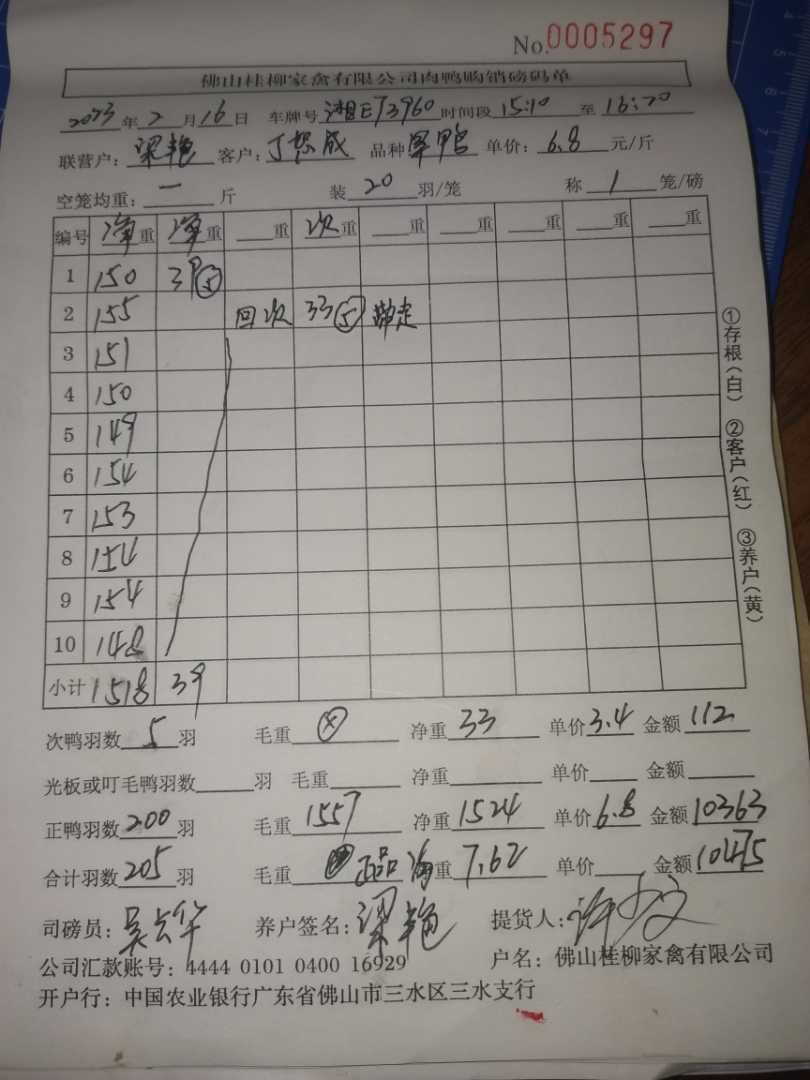 No.0005297
佛山桂柳家禽有限公司肉鸭购销磅码单
2023年2月16日 车牌号湘E73960时间段15:10至16:20
联营户:梁艳 客户:丁想成 品种 鸭 单价:6.8元/斤
空笼均重:一斤 装20羽/笼 称1笼/磅
编号 净重 净重 重 次重 重 重 重 重 重
1 150 39⑤
2 155 回次 33⑤ 带走
3 151
4 150
5 149
6 154
7 153
8 154
9 154
10 148
小计 1518 39
次鸭羽数5羽 毛重 净重33 单价3.4 金额112
光板或叮毛鸭羽数 羽 毛重 净重 单价 金额
正鸭羽数200羽 毛重1557 净重1524 单价6.8 金额10363
合计羽数205羽 毛重 正品 重7.62 单价 金额10475
司磅员:吴云华 养户签名:梁艳 提货人:许少文
公司汇款账号:4444 0101 0400 16929 户名:佛山桂柳家禽有限公司
开户行:中国农业银行广东省佛山市三水区三水支行
①存根(白) ②客户(红) ③养户(黄)